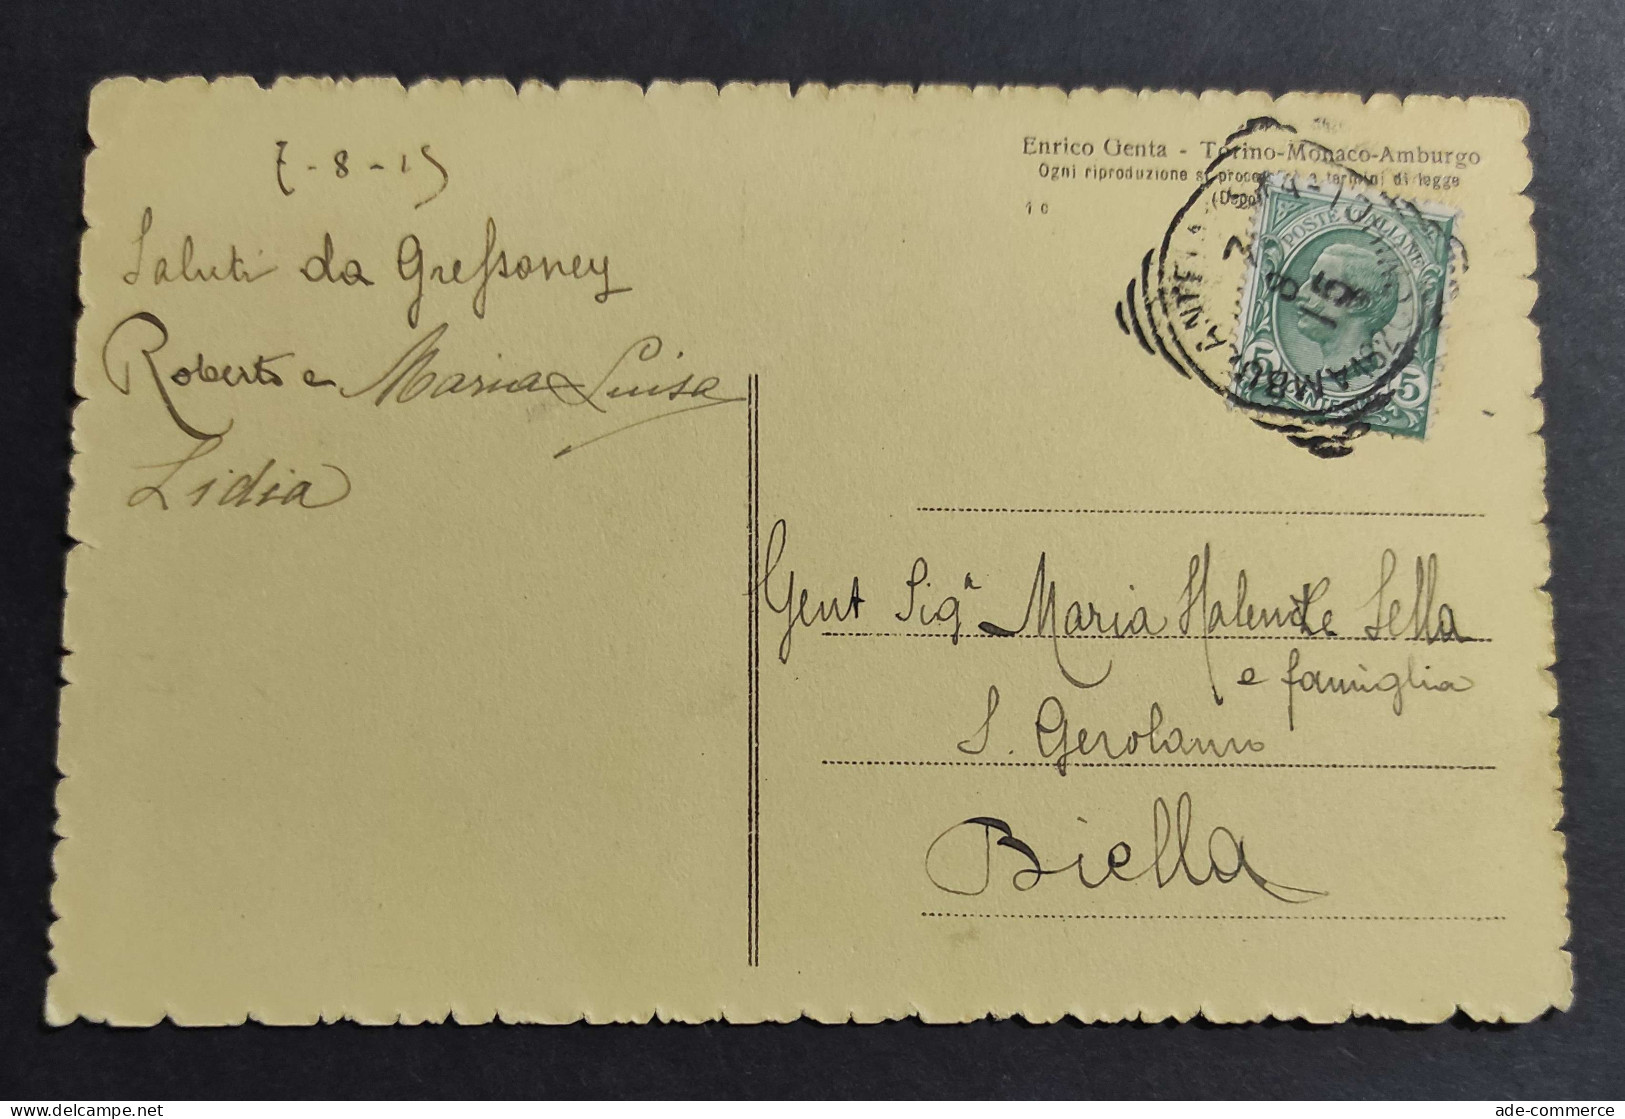 7-8-15
Saluti da Gressoney
Roberto e Maria Luisa
Lidia
Enrico Genta - Torino-Monaco-Amburgo
Ogni riproduzione si procederà a termini di legge
(Depo
POSTE ITALIANE
5 5
AMBULANTE
8 15
Gent Sigª Maria Sella
e famiglia
S. Gerolamo
Biella
ade-commerce